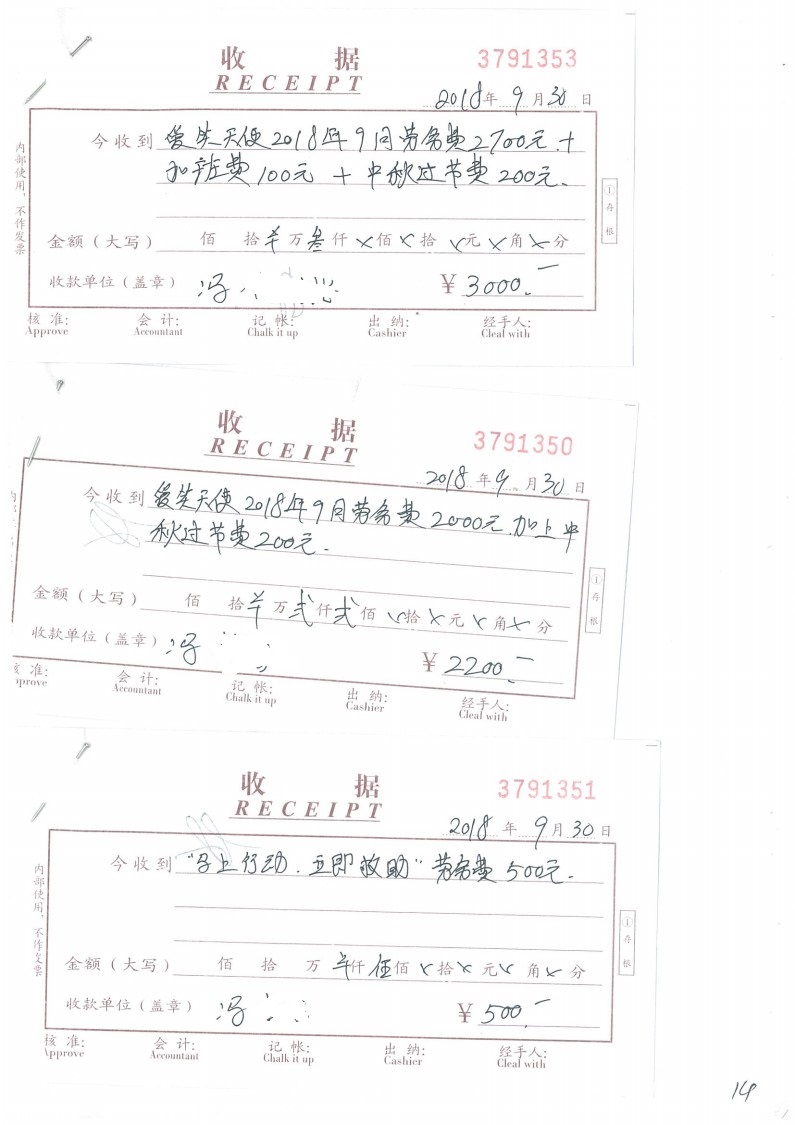 收 据 3791353
RECEIPT
2018年 9月30日
今收到 爱笑天使2018年9月劳务费2700元+
和谐费100元 + 中秋过节费200元.
内部使用,不作发票
①存根
金额(大写) 佰 拾羊万叁仟×佰×拾×元×角×分
收款单位(盖章) 冯 ¥3000.—
核准: 会计: 记帐: 出纳: 经手人:
Approve Accountant Chalk it up Cashier Cleal with
收 据 3791350
RECEIPT
2018年9月30日
今收到 爱笑天使2018年9月劳务费2000元.加上中
秋过节费200元.
①存根
金额(大写) 佰 拾羊万弍仟弍佰×拾×元×角×分
收款单位(盖章) 冯 ¥2200.—
准: 会计: 记帐: 出纳: 经手人:
prove Accountant Chalk it up Cashier Cleal with
收 据 3791351
RECEIPT
2018年 9月30日
今收到 "马上行动.立即救助"劳务费500元.
内部使用,不作发票
①存根
金额(大写) 佰 拾 万羊仟伍佰×拾×元×角×分
收款单位(盖章) 冯 ¥500.—
核准: 会计: 记帐: 出纳: 经手人:
Approve Accountant Chalk it up Cashier Cleal with
14